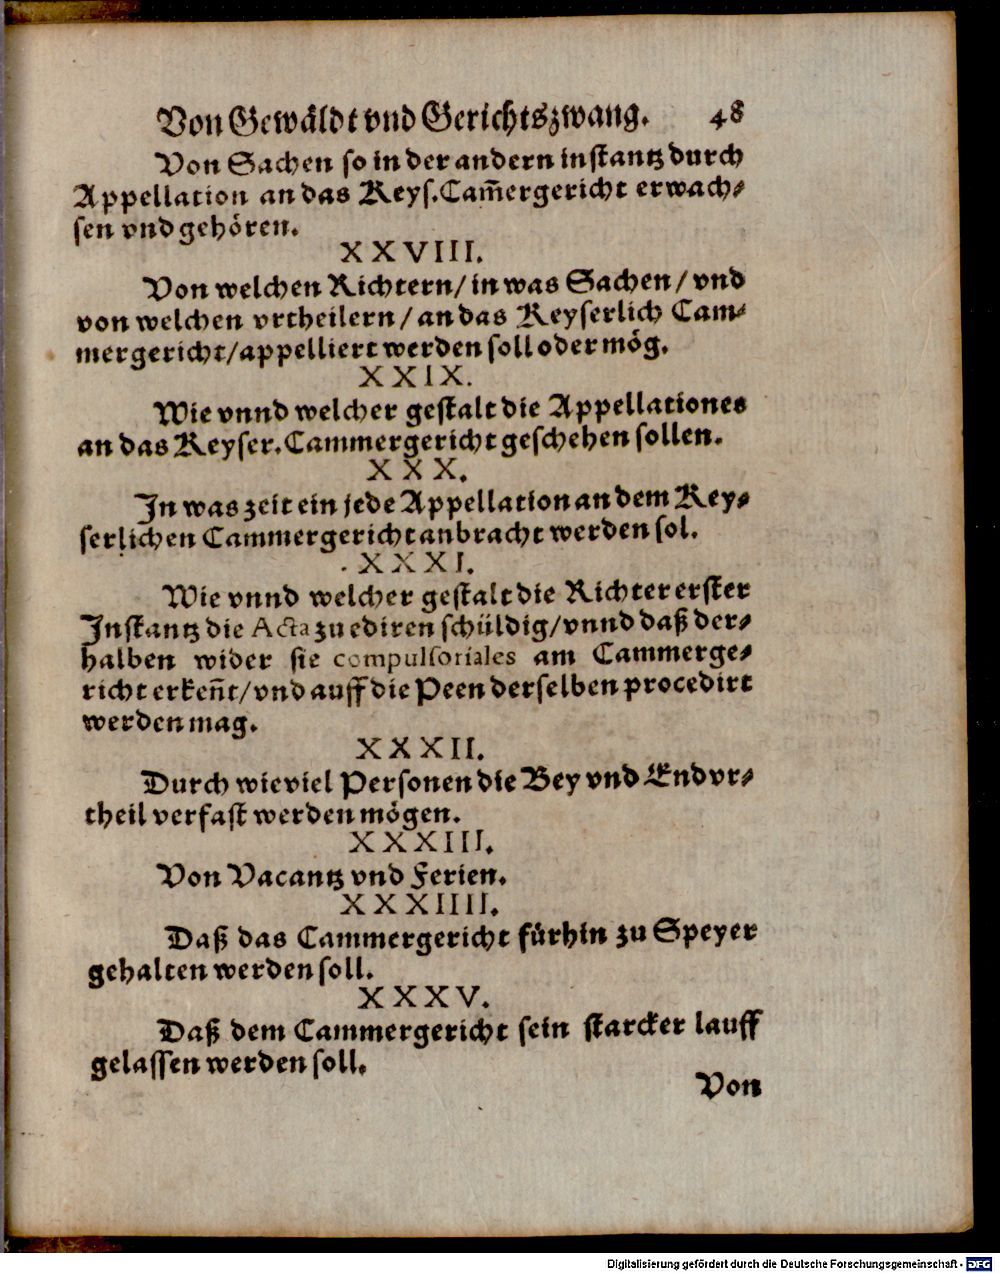 Von Gewäldt vnd Gerichtszwang. 48
Von Sachen so in der andern instantz durch
Appellation an das Keys. Cam̃ergericht erwach⸗
sen vnd gehören.
XXVIII.
Von welchen Richtern/ in was Sachen/ vnd
von welchen vrtheilern/ an das Keyserlich Cam⸗
mergericht/ appelliert werden soll oder mög.
XXIX.
Wie vnnd welcher gestalt die Appellationes
an das Keyser. Cammergericht geschehen sollen.
XXX.
In was zeit ein jede Appellation an dem Key⸗
serlichen Cammergericht anbracht werden sol.
XXXI.
Wie vnnd welcher gestalt die Richter erster
Instantz die Acta zu ediren schüldig/ vnnd daß der⸗
halben wider sie compulsoriales am Cammerge⸗
richt erkeñt/ vnd auff die Peen derselben procedirt
werden mag.
XXXII.
Durch wieviel Personen die Bey vnd Endvr⸗
theil verfast werden mögen.
XXXIII.
Von Vacantz vnd Ferien.
XXXIIII.
Daß das Cammergericht fürhin zu Speyer
gehalten werden soll.
XXXV.
Daß dem Cammergericht sein starcker lauff
gelassen werden soll.
Von
Digitalisierung gefördert durch die Deutsche Forschungsgemeinschaft - DFG